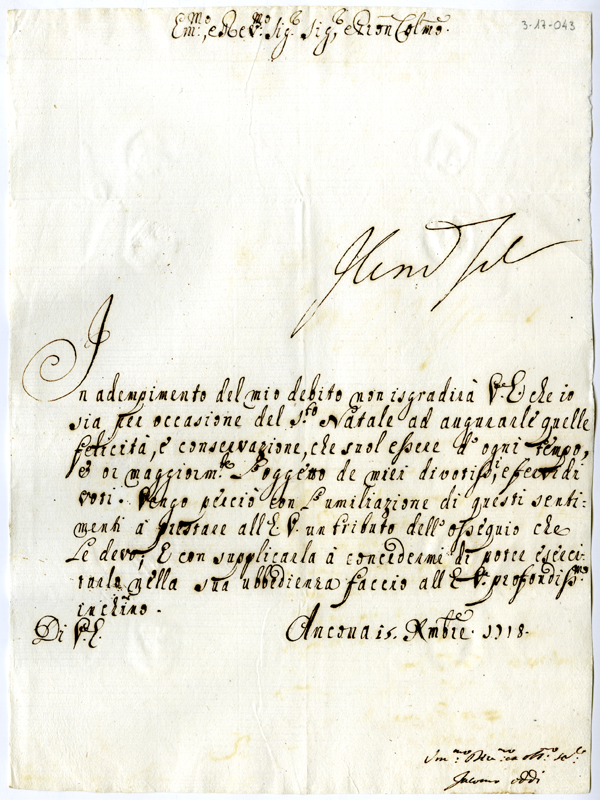 3-17-043
Em.mo, e Rev.mo Sig.r Sig.r, e Pron Colmo.
In adempimento del mio debito non isgradirà V.E. che io
sia per occasione del S.to Natale ad augurarle quelle
felicità, e conservazione, che suol essere d'ogni tempo,
e di maggiorm.te l'oggetto de miei divotiss.i, e fervidi
voti. Vengo perciò con l'umiliazione di questi senti-
menti à prestare all'E.V. un tributo dell'ossequio che
Le devo; E con supplicarla à concedermi di poter eserci-
tarlo nella sua ubbidienza faccio all'E.V. profondiss.mo
inchino.
Di V.E. Ancona 15. Xmbre. 1718.
Um.mo
Giacomo Oddi